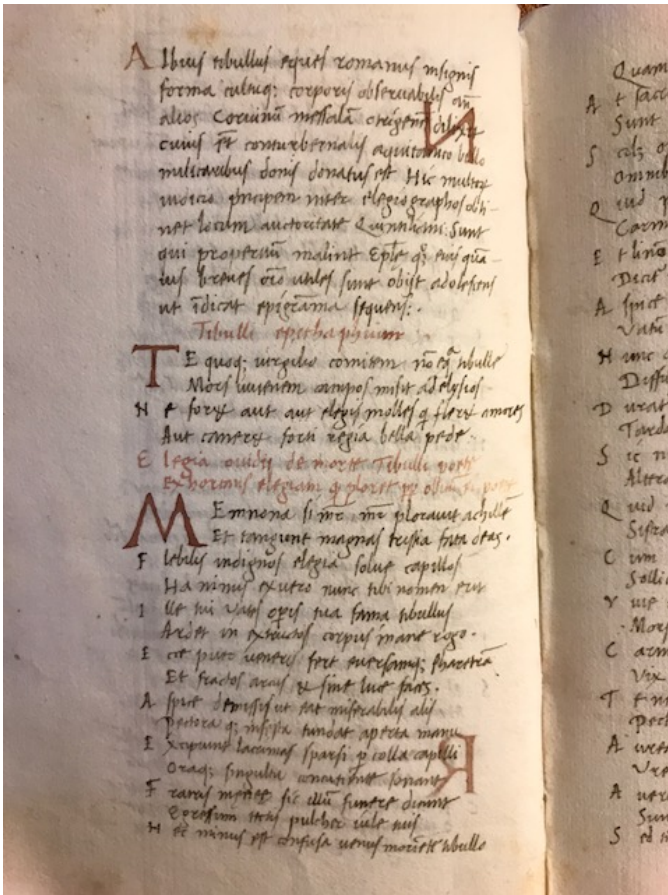 Albius tibullus eques romanus insignis
forma cultuq; corporis obseruabilis añ
alios Coruinũ messalã dilexit
cuius eẽt conturbernalis aquitanico bello
militaribus donis donatus est Hic multoꝝ
iudicio pͥncipem inter elegiographos obti-
net locum auctoritate Quintiliani: Sunt
qui propertiũ malint Eple q; eius quã-
uis breues oĩo utiles sunt obijt adolescens
ut ĩdicat epigrãma sequens:
Tibulli epithaphium
TE quoq; uirgilio comitem nõ eq̃ tibulle
Mors iuuenem campos misit ad elysios
Ne foret aut elegis molles qͥ fleret amores
Aut caneret forti regia bella pede
Elegia ouidij de morte Tibulli poete
elegiam
MEmnona si mr̃ mr̃ plorauit achillẽ
Et tangunt magnas tristia fata deas.
Flebilis indignos elegia solue capillos
Ha nimis ex uero nunc tibi nomen erit
Ille tui uates opis tua fama tibullus
Ardet in extructos corpus inane rogo.
Ecce puer ueneris fert euersamq; pharetrã
Et fractos arcus & sine luce faces.
Aspice demissis ut eat miserabilis alis
Pectora q; infesta tundat aperta manu
Excipiunt lacrimas sparsi p colla capilli
Oraq; singultu concutiente sonant
Fratris sic illũ funere dicunt
Egressum tectis pulcher iule tuis
Nec minus est confusa uenus moriẽte tibullo
N
R
Quam
Sunt
Omnib
Quid p
Carm
Dicit
Aspice
Hunc
Diffu
Durat
Tard
Sic n
Altera
Quid
Cum
Sollic
Mors
Carm
Vix
Aure
Auer
Sun
Sed t